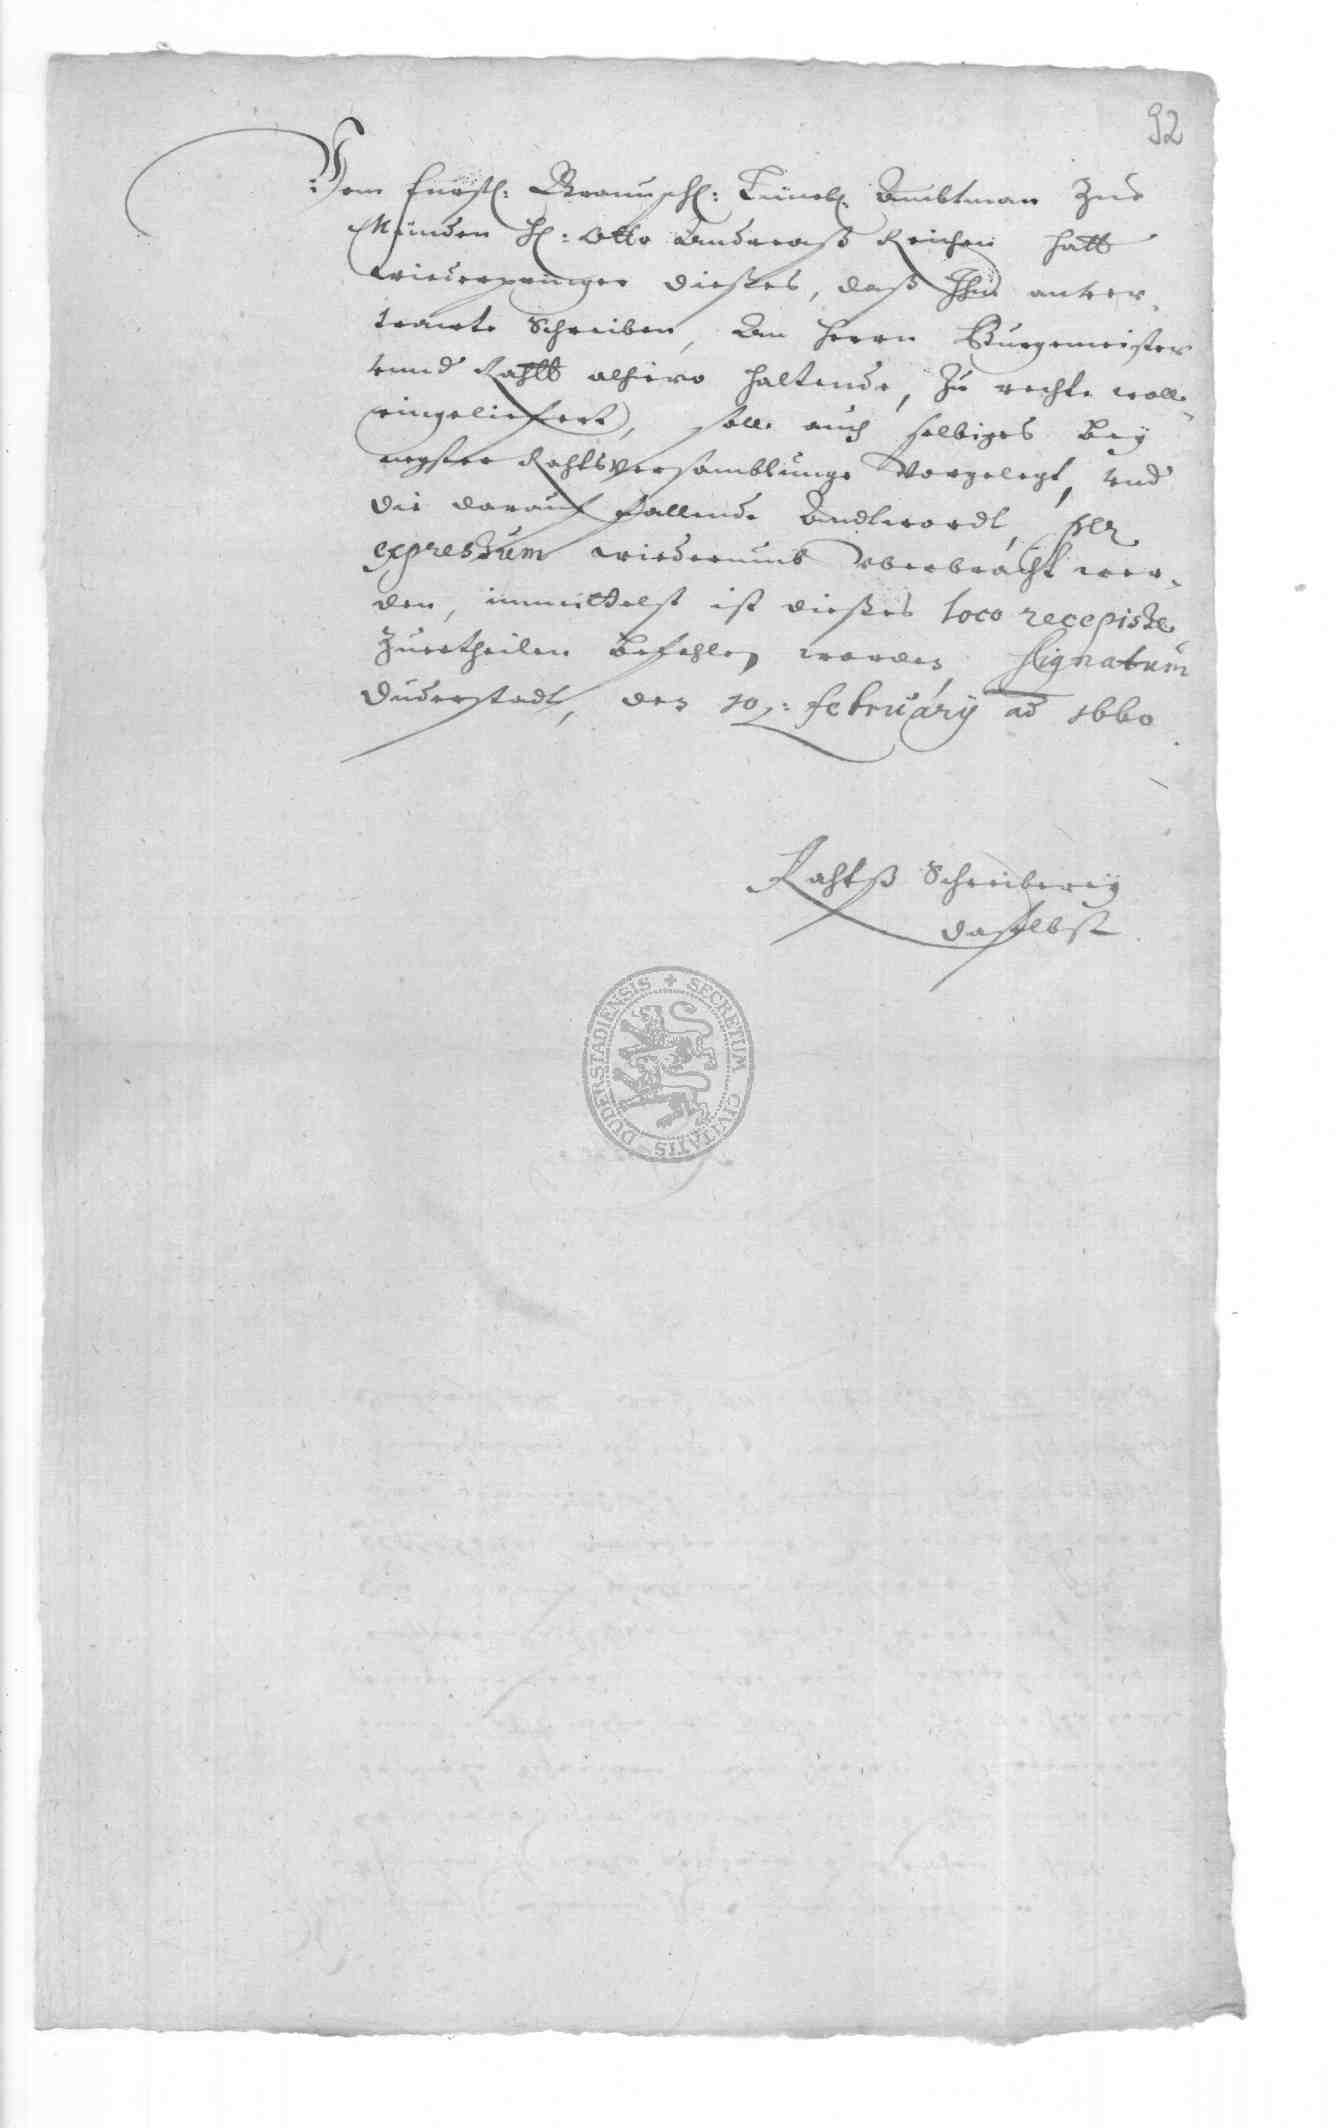 92
Dem fürstl: Braunschl: Lüneb: Ambtman Zue
Münden H: Otto Andreaß Reichen hatt
wiederpringer dießes, daß Ihm anver-
trawte Schreiben, An Herrn Burgemeister
vund Rahtt alhiero haltende, Zu rechte woll
eingeliefert, solle auch selbiges bey
negster Rahtsversamblunge Vorgelegt, vnd
die darauf fallende Andtwordt, per
expressum wiederumb überbracht wer-
den, immittelst ist dießes loco recepisse
Zuertheilen befehlen worden, Signatum
Duderstadt, den 10: february aō 1660
Rahtß Schreiberey
daselbst
SECRETUM CIVITATIS DUDERSTADIENSIS